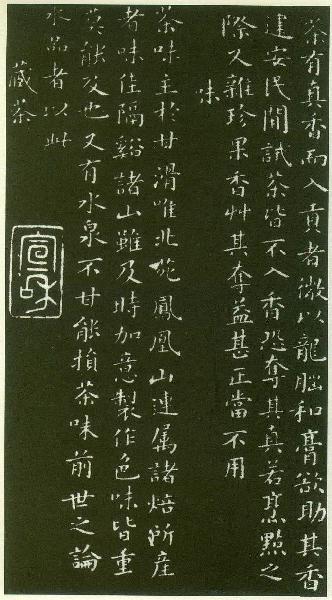 茶有真香而入貢者微以龍腦和膏欲助其香
建安民間試茶皆不入香恐奪其真若烹點之
際又雜珍果香艸其奪益甚正當不用
味
茶味主於甘滑唯北苑鳳凰山連属諸焙所產
者味佳隔谿諸山雖及時加意製作色味皆重
莫能及也又有水泉不甘能損茶味前世之論
水品者以此
藏茶
宣和